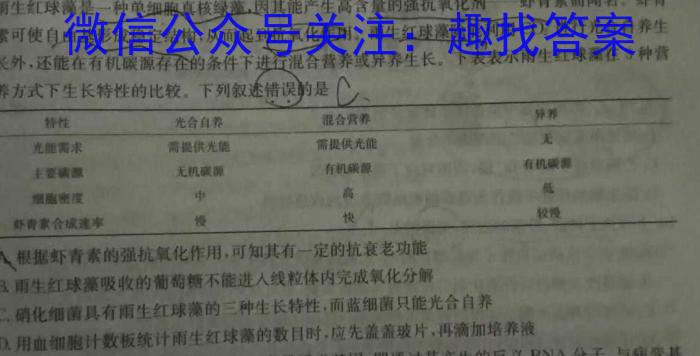 雨生红球藻是一种单细胞真核绿藻,因其能产生高含量的强抗氧化剂——虾青素而闻名。虾青
素可使自由
微信公众号关注：趣找答案
养生
长外,还能在有机碳源存在的条件下进行混合营养或异养生长。下表表示雨生红球藻在3种营
养方式下生长特性的比较。下列叙述错误的是 C
特性 光合自养 混合营养 异养
光能需求 需提供光能 需提供光能 无
主要碳源 无机碳源 有机碳源 有机碳源
细胞密度 中 高 低
虾青素合成速率 慢 快 较慢
A.根据虾青素的强抗氧化作用,可知其有一定的抗衰老功能
B.雨生红球藻吸收的葡萄糖不能进入线粒体内完成氧化分解
C.硝化细菌具有雨生红球藻的三种生长特性,而蓝细菌只能光合自养
D.用血细胞计数板统计雨生红球藻的数目时,应先盖盖玻片,再滴加培养液